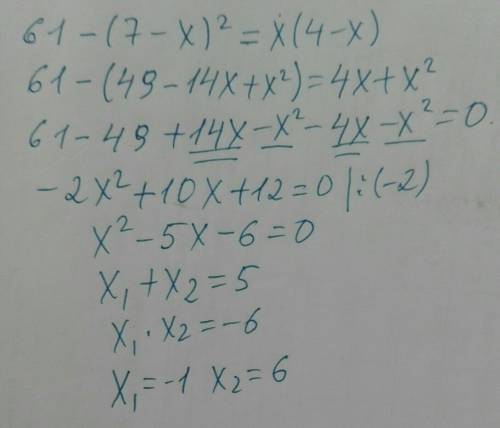 61-(7-x)²=x(4-x)
61-(49-14x+x²)=4x+x²
61-49+14x-x²-4x-x²=0.
-2x²+10x+12=0 |:(-2)
x²-5x-6=0
x₁+x₂=5
x₁·x₂=-6
x₁=-1 x₂=6